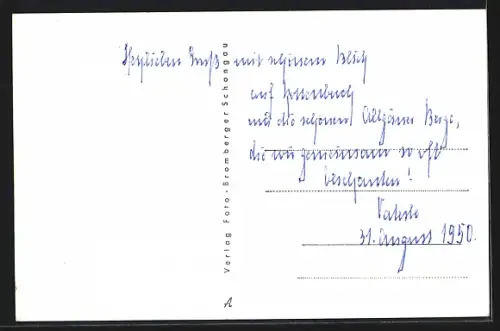 Herzlichen Gruß mit schönem Blick
auf
und die schönen Allgäuer Berge,
die wir gemeinsam so oft
beschauten!
31. August 1950.
Verlag Foto-Bromberger Schongau